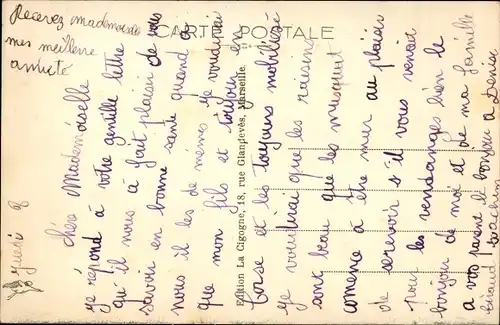 CARTE POSTALE
Edition La Cigogne, 18, rue Glandevès, Marseille.
Jeudi 8
Chère Mademoiselle
Je répond à votre gentille lettre
qu'il nous à fait plaisir de vous
savoir en bonne sante quand a
nous il les de mêmes je voudrai
que mon fils et toujour en
Corse et les toujours mobilisé
Je vous dirai que les raisins
sont beau que les musquat
comence à être mur au plaisir
de serevoir s'il vous venait
pour les vendanges bien le
bonjour de moi et de ma famille
a vos parent le bonjour a Denise
Recevez mademoiselle
mes meilleure
amitié